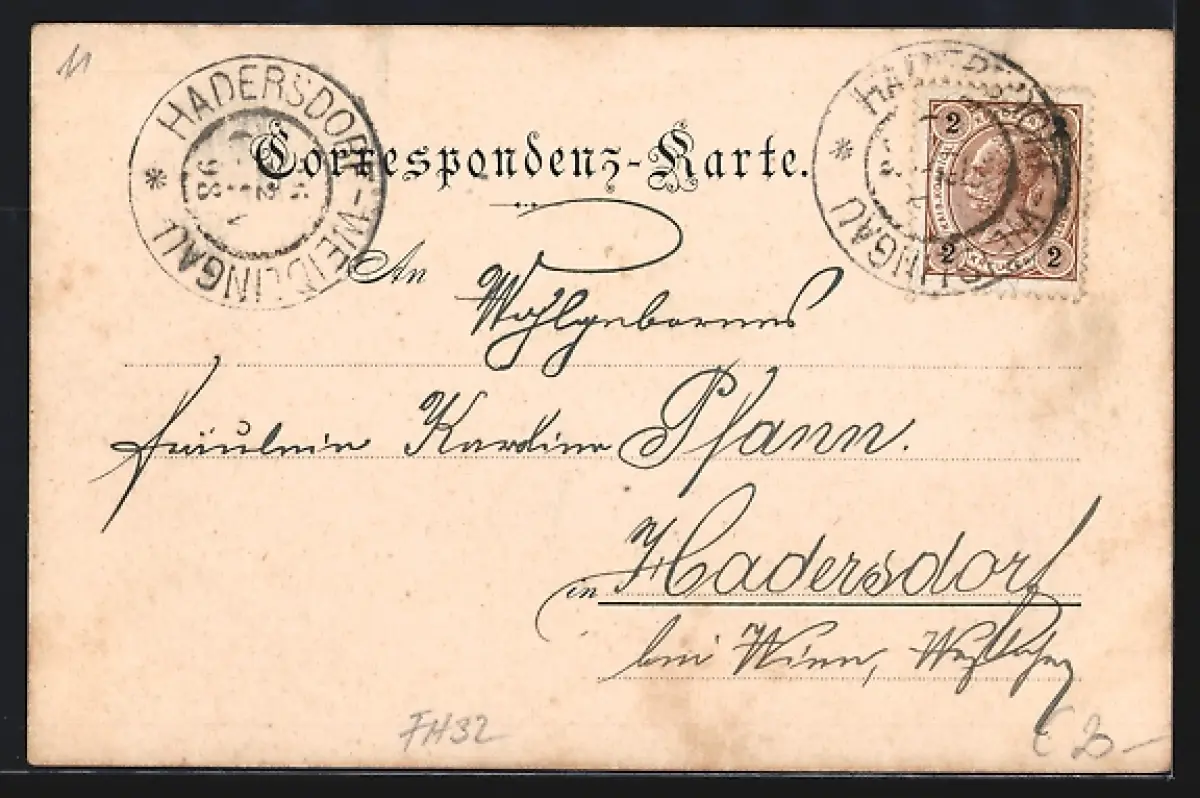 11
HADERSDORF-WEIDLINGAU
98
HADERSDORF-WEIDLINGAU
2 2 2
Correspondenz-Karte.
An
Wohlgebornes
Fräulein Karoline Pfann.
in Hadersdorf
bei Wien, Westbahn
FH32
€ 20-